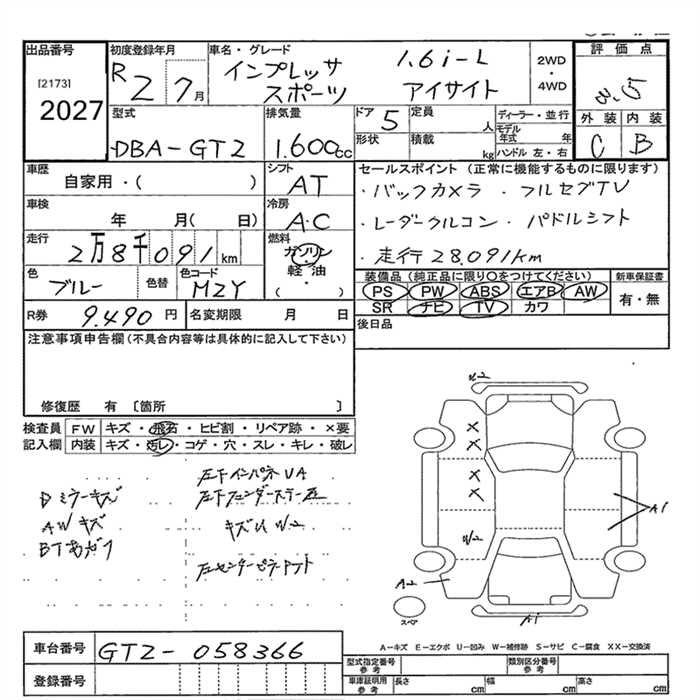 出品番号
[2173]
2027
初度登録年月
R2 7月
車名・グレード
インプレッサ
スポーツ
1.6i-L
アイサイト
2WD
・
4WD
評価点
3.5
外装 内装
C B
型式
DBA-GT2
排気量
1.600cc
ドア 5
形状
定員 人
積載 kg
ディーラー・並行
モデル年式 年
ハンドル 左・右
車歴
自家用・( )
シフト
AT
車検
年 月( 日)
冷房
A・C
走行
2万8千091km
燃料
ガソリン
・
軽油
・
( )
色
ブルー
色替
色コード
MZY
R券
9.490円
名変期限 月 日
セールスポイント(正常に機能するものに限ります)
・バックカメラ ・フルセグTV
・レーダークルコン ・パドルシフト
・走行28,091km
装備品(純正品に限り○をつけてください)
PS PW ABS エアB AW
SR ナビ TV カワ
新車保証書
有・無
後日品
注意事項申告欄(不具合内容等は具体的に記入して下さい)
修復歴 有 〔箇所 〕
検査員
記入欄
FW キズ・飛石・ヒビ割・リペア跡・×要
内装 キズ・汚レ・コゲ・穴・スレ・キレ・破レ
Dミラーキズ
AWキズ
BTあガリ
左下インパネUA
左下フェンダーステー
キズU W2
左センターピラー
W2
×
×
×
×
W2
A2
A1
A1
スペア
A-キズ E-エクボ U-凹み W-補修跡 S-サビ C-腐食 XX-交換済
車台番号
GT2-058366
登録番号
型式指定番号
参考
類別区分番号
参考
車庫証明用
参考
長さ cm
幅 cm
高さ cm